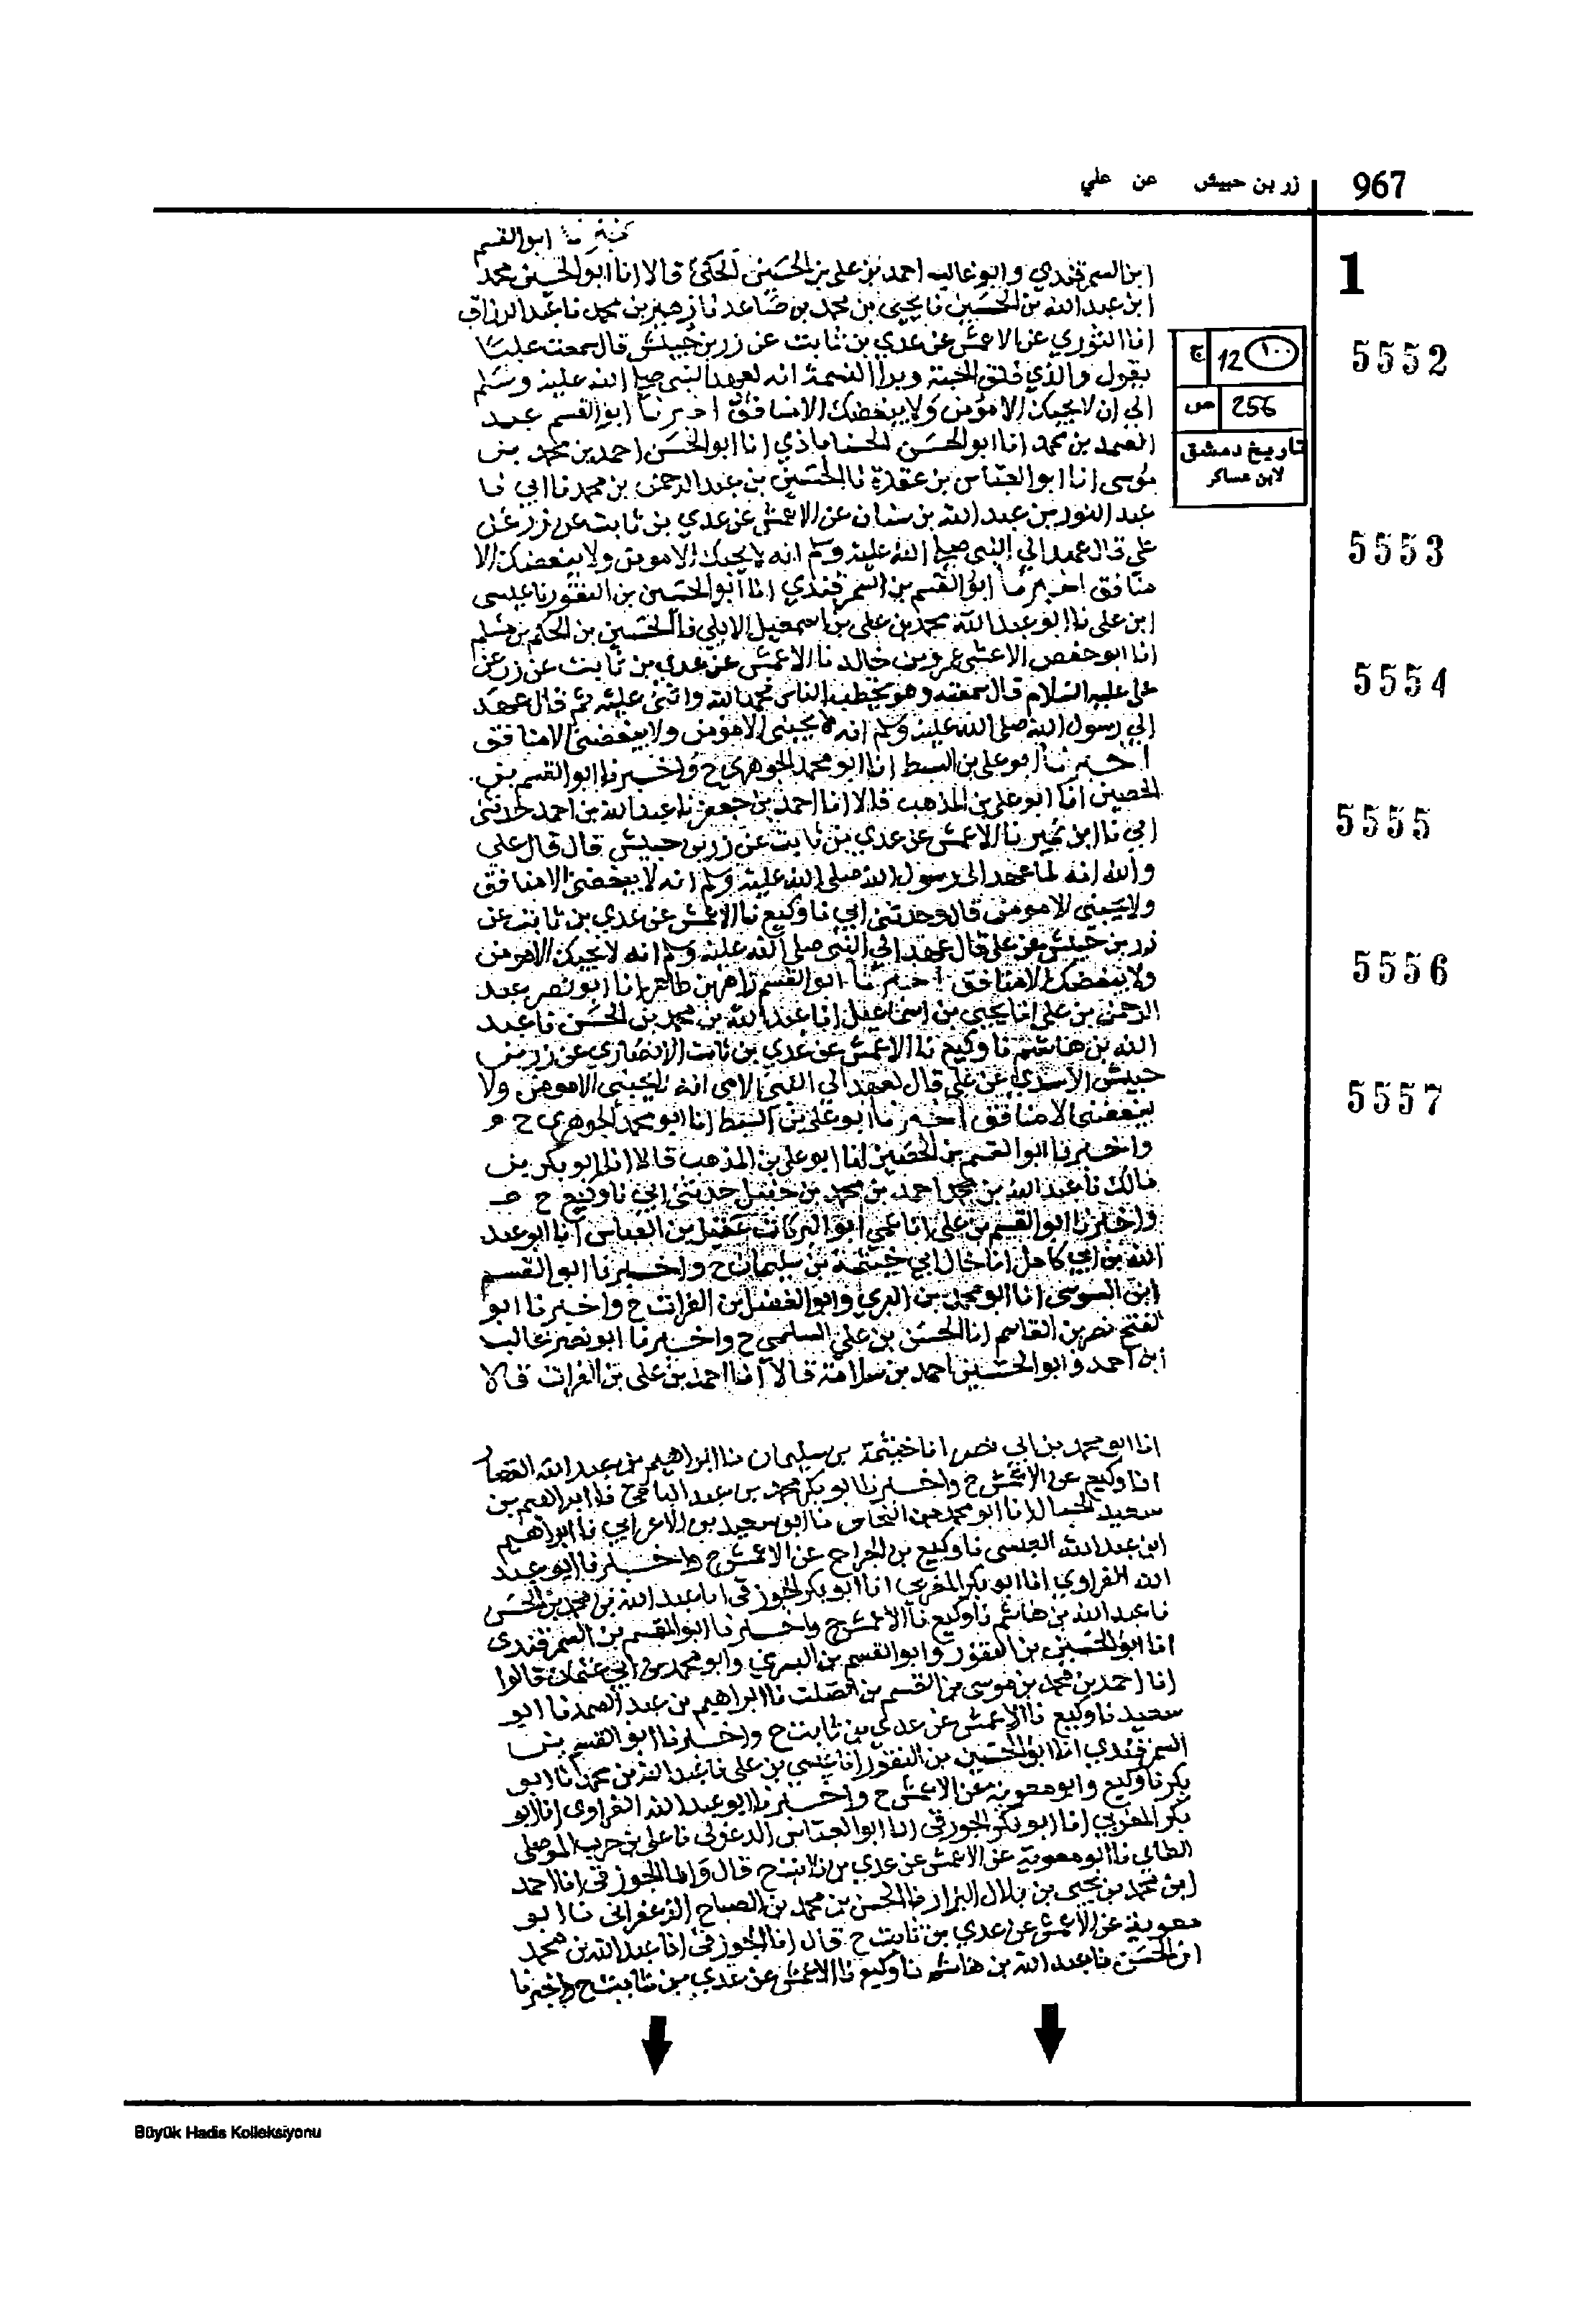 967
زر بن حبيش عن علي
1
اخبرنا ابوالقسم
ابن السمرقندي وابوغالب احمد بن علي بن الحسين الجكي قالا انا ابوالحسين محمد
ابن عبدالله بن الحسين نا يحيى بن محمد بن صاعد نا زهير بن محمد نا عبدالرزاق
5552
ج 12 ١٠٠
ص 256
تاريخ دمشق
لابن عساكر
انا الثوري عن الاعمش عن عدي بن ثابت عن زر بن حبيش قال سمعت عليا
يقول والذي فلق الحبة وبرا النسمة انه لعهد النبي صلى الله عليه وسلم
الي ان لا يحبك الا مؤمن ولا يبغضك الا منافق اخبرنا ابوالقسم عبد
الصمد بن محمد انا ابوالحسن الحناباذي انا ابوالحسن احمد بن محمد بن
موسى انا ابوالعباس بن عقدة نا الحسين بن عبدالرحمن بن محمد نا ابي نا
عبد النور بن عبد الله بن سنان عن الاعمش عن عدي بن ثابت عن زر عن
5553
علي قال عهد الي النبي صلى الله عليه وسلم انه لا يحبك الا مومن ولا يبغضك الا
منافق اخبرنا ابوالقسم بن السمرقندي انا ابوالحسين بن النقور نا عيسى
ابن علي نا ابوعبدالله محمد بن علي بن اسمعيل الايلي نا الحسين بن الحكم بن مسلم
انا ابوحفص الاعشى عمرو بن خالد نا الاعمش عن عدي بن ثابت عن زر عن
5554
علي عليه السلام قال سمعته وهو يخطب الناس فحمد الله واثنى عليه ثم قال عهد
الي رسول الله صلى الله عليه وسلم انه لا يحبني الا مؤمن ولا يبغضني الا منافق
اخبرنا ابوعلي بن السبط انا ابومحمد الجوهري ح واخبرنا ابوالقسم بن
الحصين انا ابوعلي بن المذهب قالا انا احمد بن جعفر نا عبدالله بن احمد حدثني
5555
ابي نا ابن نمير نا الاعمش عن عدي بن ثابت عن زر بن حبيش قال قال علي
والله انه لما عهد الي رسول الله صلى الله عليه وسلم انه لا يبغضني الا منافق
ولا يحبني الا مومن قال وحدثني ابي نا وكيع نا الاعمش عن عدي بن ثابت عن
زر بن حبيش عن علي قال عهد الي النبي صلى الله عليه وسلم انه لا يحبك الا مومن
5556
ولا يبغضك الا منافق اخبرنا ابوالقسم زاهر بن طاهر انا ابونصر عبد
الرحمن بن علي انا يحيى بن اسماعيل انا عبدالله بن محمد بن الحسن نا عبد
الله بن هاشم نا وكيع نا الاعمش عن عدي بن ثابت الانصاري عن زر بن
حبيش الاسدي عن علي قال لعهد الي النبي الامي انه لا يحبني الا مومن ولا
5557
يبغضني الا منافق اخبرنا ابوعلي بن السبط انا ابومحمد الجوهري ح و
واخبرنا ابوالقسم بن الحصين انا ابوعلي بن المذهب قالا انا ابوبكر بن
مالك نا عبدالله بن احمد بن محمد بن حنبل حدثني ابي نا وكيع ح
واخبرنا ابوالقسم بن علي انا عمي ابوالبركات عقيل بن العباس انا ابوعبد
الله بن ابي كامل انا خال ابي خيثمة بن سليمان ح واخبرنا ابوالقسم
ابن السوسي انا ابومحمد بن البري وابوالفضل بن الفرات ح واخبرنا ابو
الفتح نصر بن القاسم انا الحسن بن علي السلمي ح واخبرنا ابونصر غالب
ابن احمد وابوالحسين احمد بن سلامة قالا انا احمد بن علي بن الفرات قالا
انا ابومحمد بن ابي نصر انا خيثمة بن سليمان نا ابراهيم بن عبدالله القصار
انا وكيع عن الاعمش ح واخبرنا ابوبكر محمد بن عبدالباقي نا ابراهيم بن
سعيد الحبال انا ابومحمد بن النحاس نا ابوسعيد بن الاعرابي نا ابراهيم
ابن عبدالله العبسي نا وكيع بن الجراح عن الاعمش ح واخبرنا ابوعبد
الله الفراوي انا ابوبكر المغربي انا ابوبكر الجوزقي انا عبدالله بن محمد بن الحسن
نا عبدالله بن هاشم نا وكيع نا الاعمش ح واخبرنا ابوالقسم بن السمرقندي
انا ابوالحسين بن النقور وابوالقسم بن البسري وابومحمد بن ابي عثمان قالوا
انا احمد بن محمد بن موسى بن القسم بن الصلت نا ابراهيم بن عبد الصمد نا ابو
سعيد نا وكيع نا الاعمش عن عدي بن ثابت ح واخبرنا ابوالقسم بن
السمرقندي انا ابوالحسين بن النقور انا عيسى بن علي نا عبدالله بن محمد نا ابو
بكر نا وكيع وابومعوية عن الاعمش ح واخبرنا ابوعبدالله الفراوي انا ابو
بكر المغربي انا ابوبكر الجوزقي انا ابوالعباس الدغولي نا علي بن حرب الموصلي
الطائي نا ابومعوية عن الاعمش عن عدي بن ثابت ح قال وانا الجوزقي انا احمد
ابن محمد بن يحيى بن بلال البزاز نا الحسن بن محمد بن الصباح الزعفراني نا ابو
معوية عن الاعمش عن عدي بن ثابت ح قال انا الجوزقي انا عبدالله بن محمد
ابن الحسن نا عبدالله بن هاشم نا وكيع نا الاعمش عن عدي بن ثابت ح واخبرنا
Büyük Hadis Kolleksiyonu